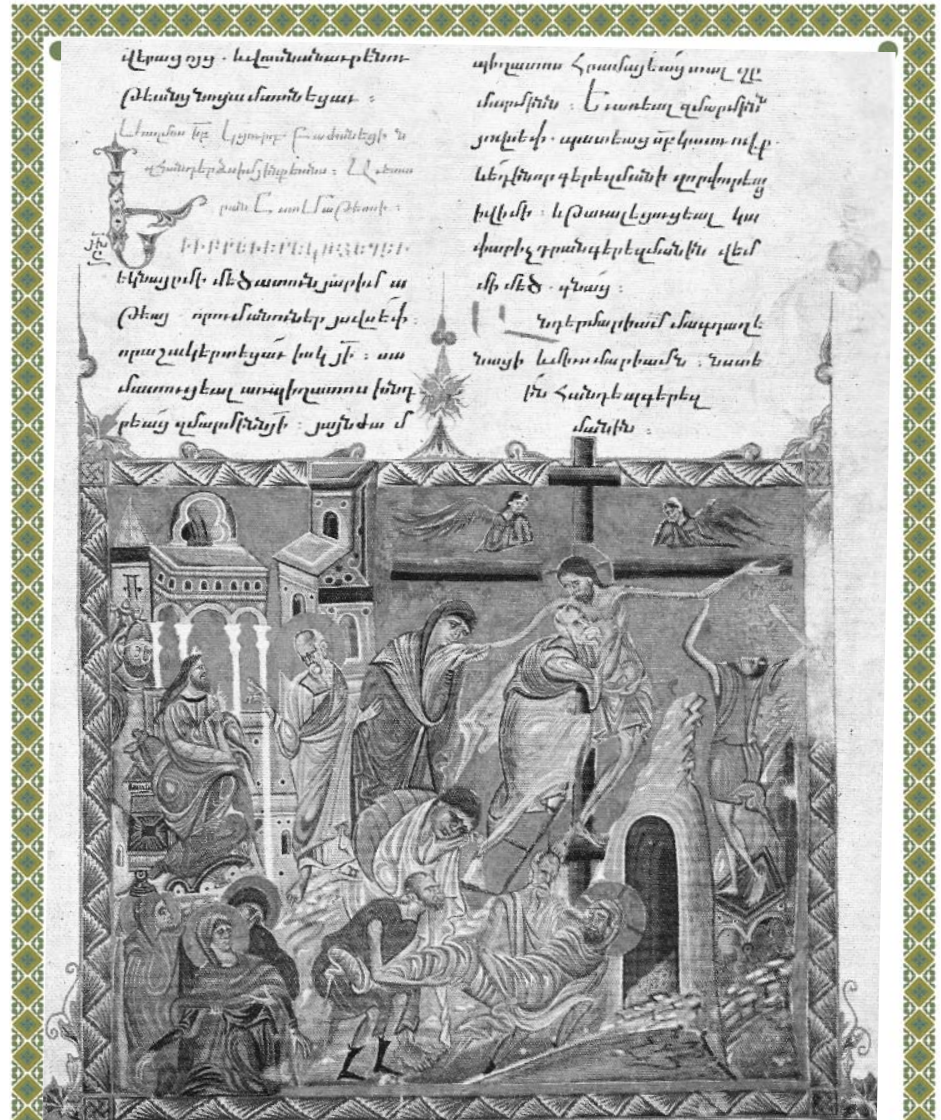 վերացոյց . և վասն անաւրէնու
թեանց նոցա մատնեցաւ :
Եւ ԻԲՐԵՒ ԵՐԵԿՈՅ ԵՂԵՒ
եկն այր մի մեծատուն յարիմա
թեայ որում անուն էր յովսէփ .
որ աշակերտեցաւ իսկ յի : սա
մատուցեալ առ պիղատոս խնդ
րեաց զմարմինն յի : յայնժամ
պիղատոս հրամայեաց տալ զ
մարմինն : Եւ առեալ զմարմինն
յովսէփ . պատեաց սբ կտաւովք .
և եդ ի նոր գերեզմանի զոր փորեաց
ի վիմի : և թաւալեցուցեալ կա
փարիչ դրան գերեզմանին վէմ
մի մեծ . գնաց :
նդ էր մարիամ մագդաղե
նացի և միւս մարիամն . նստէ
ին հանդէպ գերեզ
մանին :